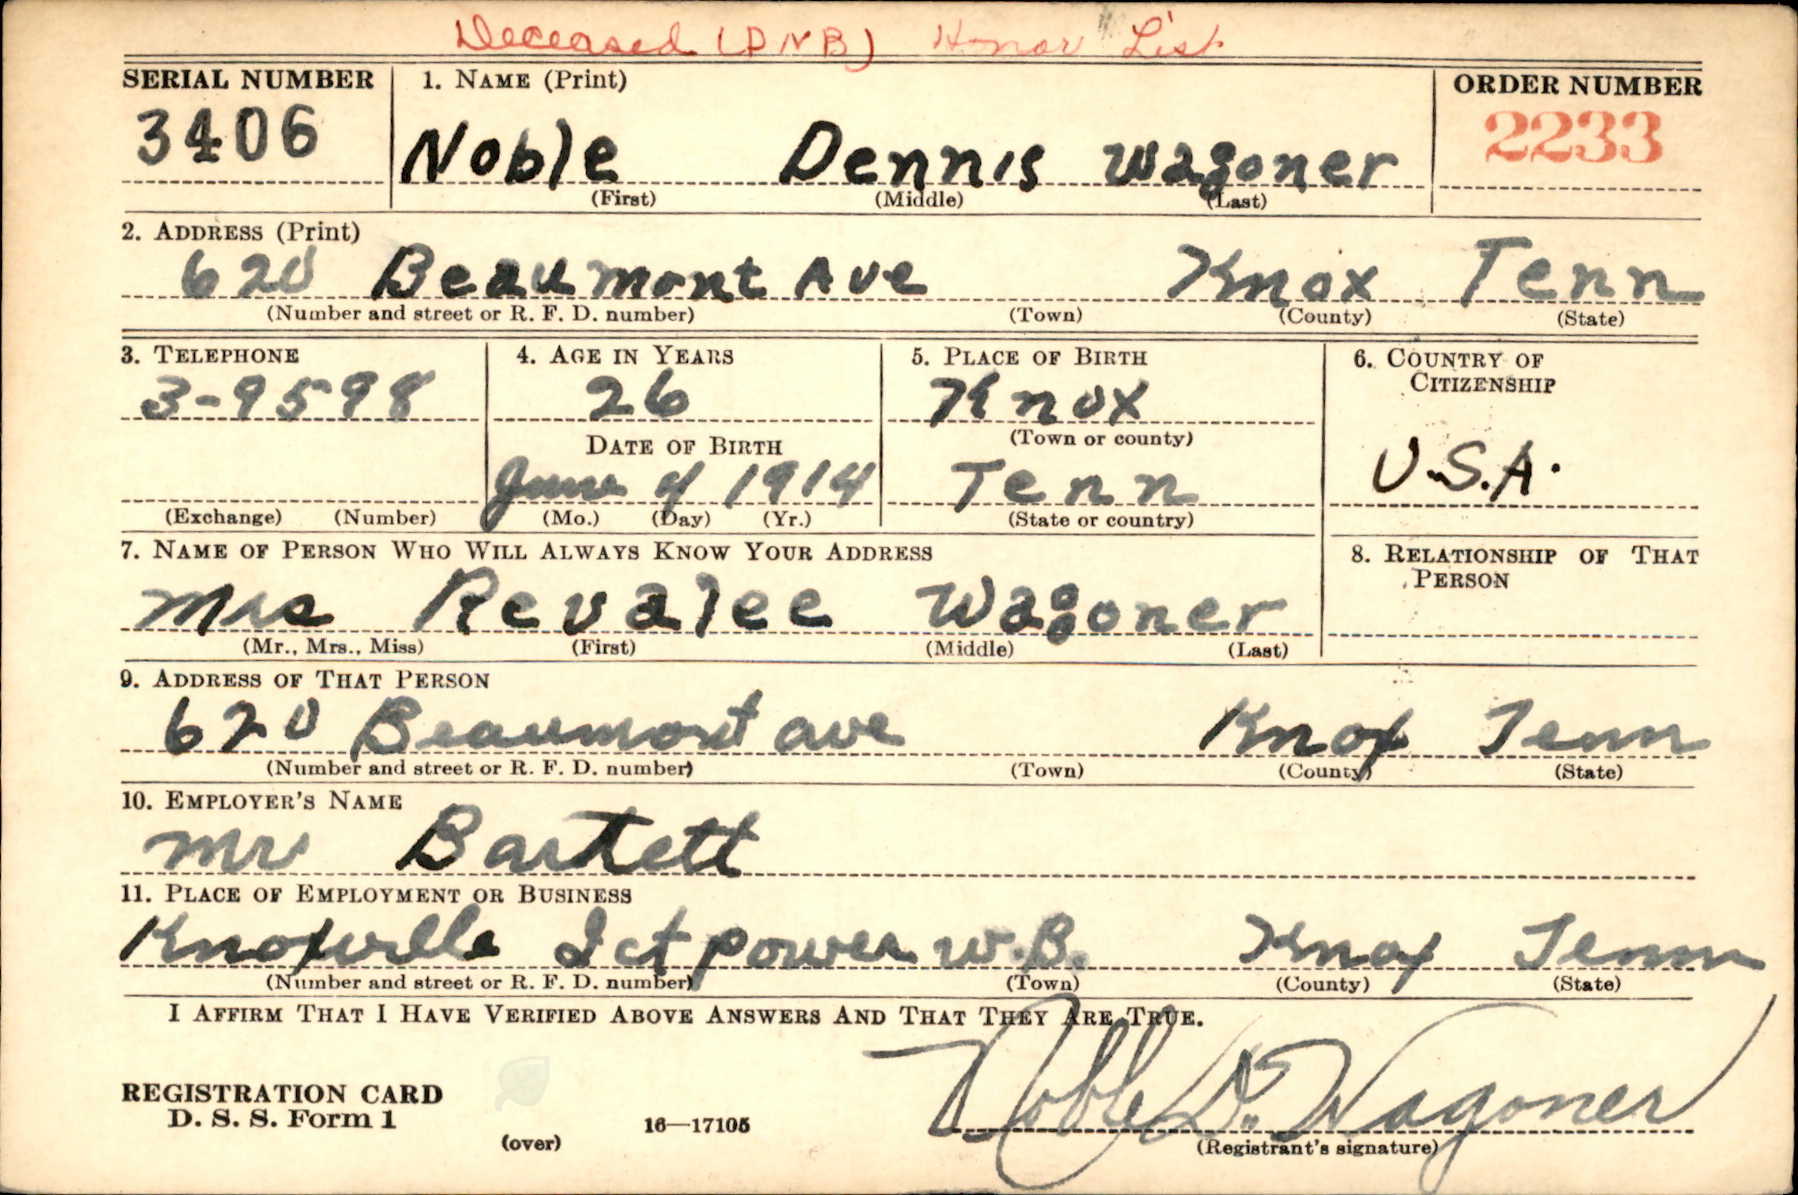 Deceased (DNB) Honor List
SERIAL NUMBER 1. NAME (Print) ORDER NUMBER
3406 Noble Dennis Wagoner 2233
(First) (Middle) (Last)
2. ADDRESS (Print)
620 Beaumont Ave Knox Tenn
(Number and street or R. F. D. number) (Town) (County) (State)
3. TELEPHONE 4. AGE IN YEARS 5. PLACE OF BIRTH 6. COUNTRY OF
CITIZENSHIP
3-9598 26 Knox
DATE OF BIRTH (Town or county)
June 4 1914 Tenn U.S.A.
(Exchange) (Number) (Mo.) (Day) (Yr.) (State or country)
7. NAME OF PERSON WHO WILL ALWAYS KNOW YOUR ADDRESS 8. RELATIONSHIP OF THAT
PERSON
Mrs Revalee Wagoner
(Mr., Mrs., Miss) (First) (Middle) (Last)
9. ADDRESS OF THAT PERSON
620 Beaumont ave Knox Tenn
(Number and street or R. F. D. number) (Town) (County) (State)
10. EMPLOYER'S NAME
Mr Bartett
11. PLACE OF EMPLOYMENT OR BUSINESS
Knoxville power W.B. Knox Tenn
(Number and street or R. F. D. number) (Town) (County) (State)
I AFFIRM THAT I HAVE VERIFIED ABOVE ANSWERS AND THAT THEY ARE TRUE.
REGISTRATION CARD Noble D. Wagoner
D. S. S. Form 1 16—17105
(over) (Registrant's signature)